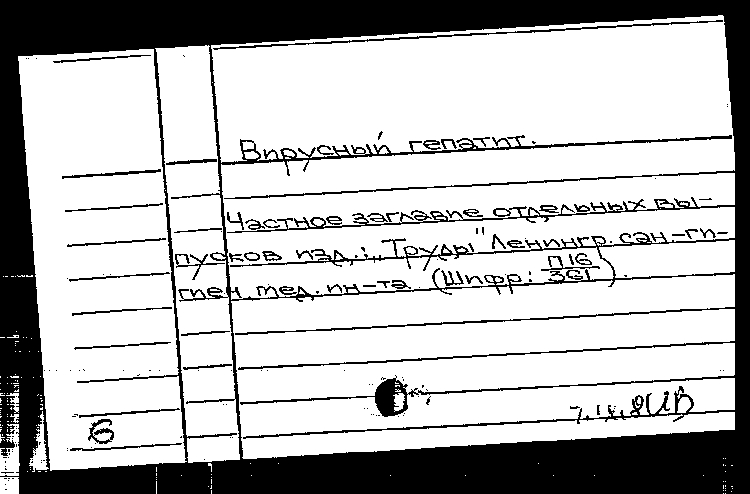 Вирусный гепатит.
Частное заглавие отдельных вы-
пусков изд.: „Труды" Ленингр. сан.-ги-
гиен. мед. ин-та (Шифр: П16/361).
б